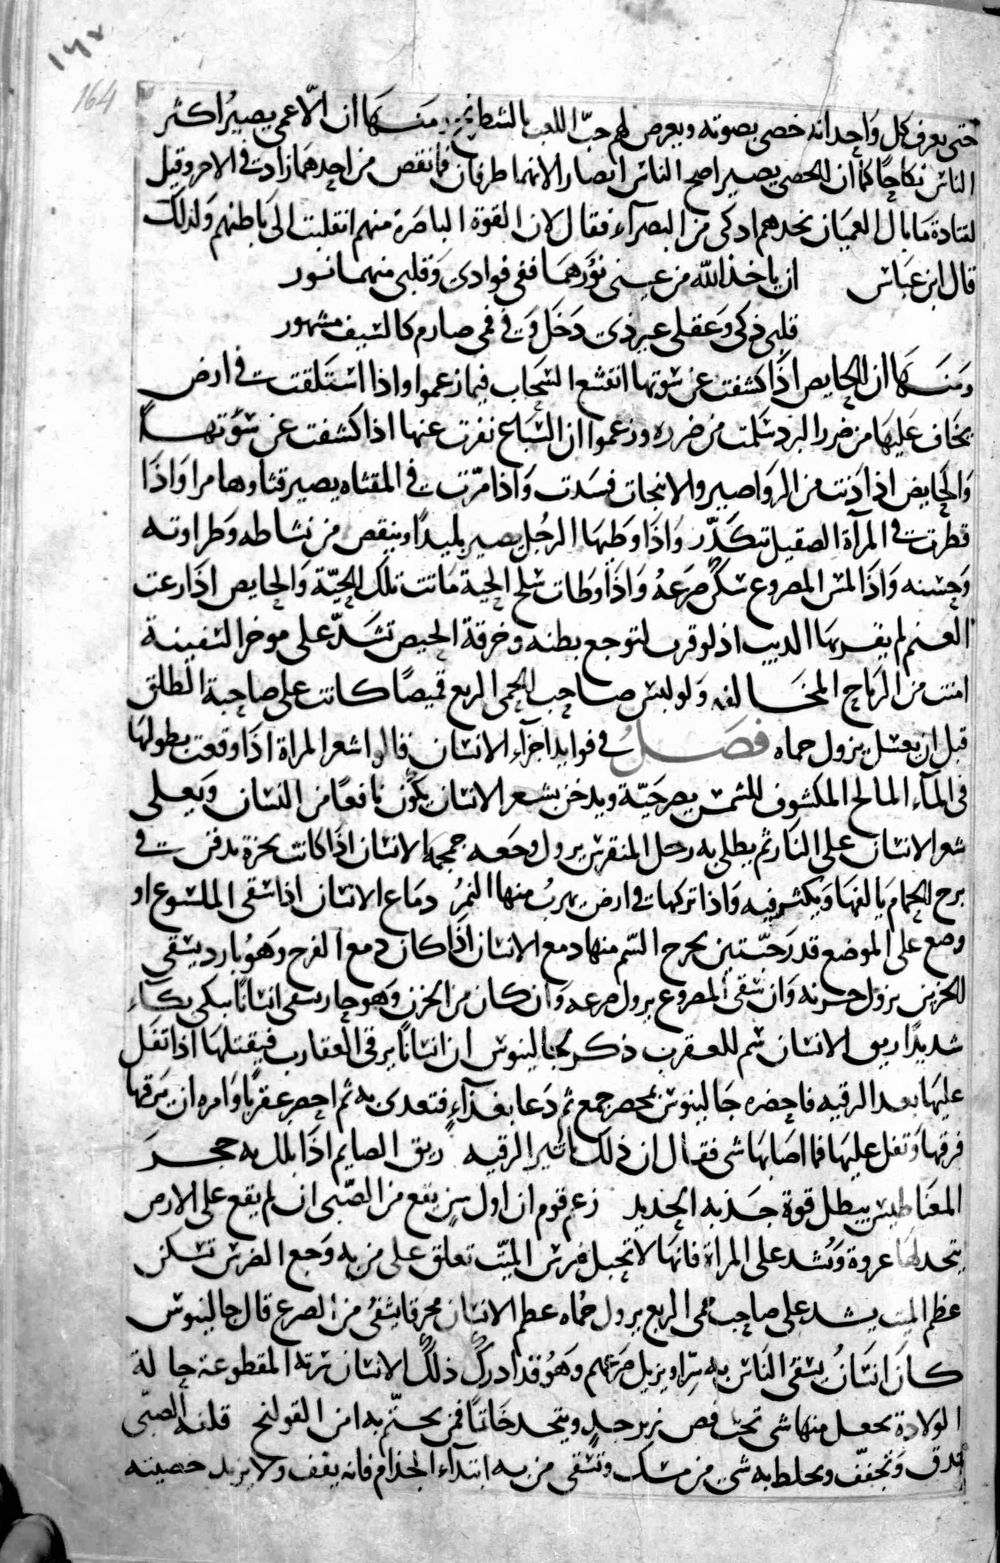 ١٦٧
164
حتى يعرف كل واحد انه خصى بصوته ويعرض لهم حب اللعب بالشطرنج ومنها ان الاعمى يصير اكثر
الناس نكاحا كما ان الخصى يصير اصح الناس ابصارا لانهما طرفان فما نقص من احدهما زاد في الاخر وقيل
لقتادة ما بال العميان نجدهم اذكى من البصرآء فقال لان القوة الباصرة منهم انقلبت الى باطنهم ولذلك
قال ابن عباس ان ياخذ الله من عينى نورهما ففى فوادى وقلبى منهما نور
قلبى ذكى وعقلى غير ذى دخل وفي فمى صارم كالسيف مشهور
ومنها ان الحايض اذا كشفت عن سوتها انقشع السحاب فيما زعموا واذا استلقت في ارض
يخاف عليها من ضرر البرد سلمت من ضرره وزعموا ان السباع نفرت عنها اذا كشفت عن سوتها
والحايض اذا دنت من الرواصير والانبجات فسدت واذا مرت في المقثاه يصير قثاوها مرا واذا
نظرت في المرآة الصقيل تتكدر واذا وطيها الرجل يصير بليدا وينقص من نشاطه وطراوته
وحسنه واذا لمس المصروع سكن صرعه واذا وطات سلخ الحية ماتت تلك الحية والحايض اذا رعت
الغنم لم يقربها الديب اذ لو قرب لتوجع بطنه وخرقة الحيض تشد على موخر السفينة
امنت من الرياح المخالفه ولو لبس صاحب الحمى الربع قميصا كانت على صاحبة الطلق
قبل ان يغسل يزول حماه فصل في فوايد اجزاء الانسان قالوا شعر المراة اذا وقعت بطولها
في المآء المالح المكشوف للشمس يصير حية ويدخن بشعر الانسان يكون نافعا من النسيان ويغلى
شعر الانسان على النار ثم يطلى به رجل المنقرس يزول وجعه جمجمة الانسان اذا كانت نخرة تدفن في
برج الحمام يالفها ويكثر فيه واذا تركها في ارض يهرب منها النمر دماغ الانسان اذا سقى الملسوع او
وضع على الموضع قدر حبتين يخرج السم منها دمع الانسان اذا كان دمع الفرح وهو بارد يسقى
الحزين يزول حزنه وان سقى المصروع يزول صرعه وان كان من الحزن وهو حار يسقى انسانا يبكى بكآء
شديدا ريق الانسان سم للعقرب ذكر جالينوس ان انسانا يرقى العقارب فيقتلها اذا تفل
عليها بعد الرقيه فاحضره جالينوس بمحضر جمع ثم دعا بغذآء فتغدى به ثم احضر عقربا وامره ان يرقها
فرقها وتفل عليها فما اصابها شى فقال ان ذلك تاثير الرقيه ريق الصايم اذا بلل به حجر
المغناطيس يبطل قوة جذبه الحديد زعم قوم ان اول سن يقع من الصبى ان لم يقع على الارض
يتخد لها عروة وتشد على المراة فانها لا تحبل ضرس الميت تعلق على من به وجع الضرس تسكن
عظم الميت يشد على صاحب حمى الربع يزول حماه عظم الانسان محرقا يشفى من الصرع قال جالينوس
كان انسان يسقى الناس به سرا ويزيل صرعهم وهو قد ادرك ذلك الانسان سرته المقطوعة حالة
الولادة يجعل منها شى تحت فص زبرجد ويتخد خاتما فمن يختم به امن القولنج قلفة الصبى
تدق وتجفف ويخلط به شى من مسك وتسقى من به ابتدآء الجذام فانه يقف ولا يزيد خصيته